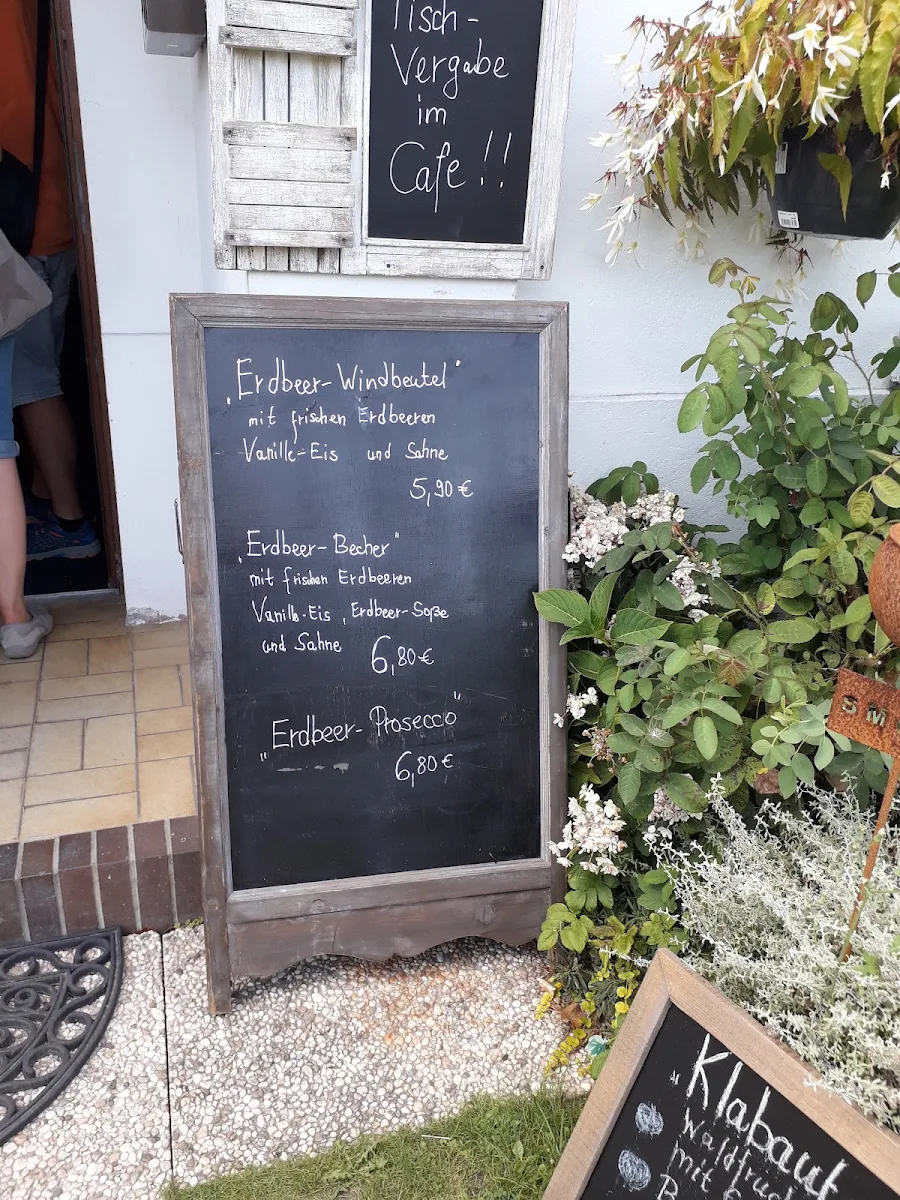 Tisch-
Vergabe
im
Cafe !!
„Erdbeer-Windbeutel"
mit frischen Erdbeeren
Vanille-Eis und Sahne
5,90 €
„Erdbeer-Becher"
mit frischen Erdbeeren
Vanille-Eis, Erdbeer-Soße
und Sahne 6,80 €
„Erdbeer-Prosecco"
6,80 €
SM
"Klabaut
Waldfru
mit